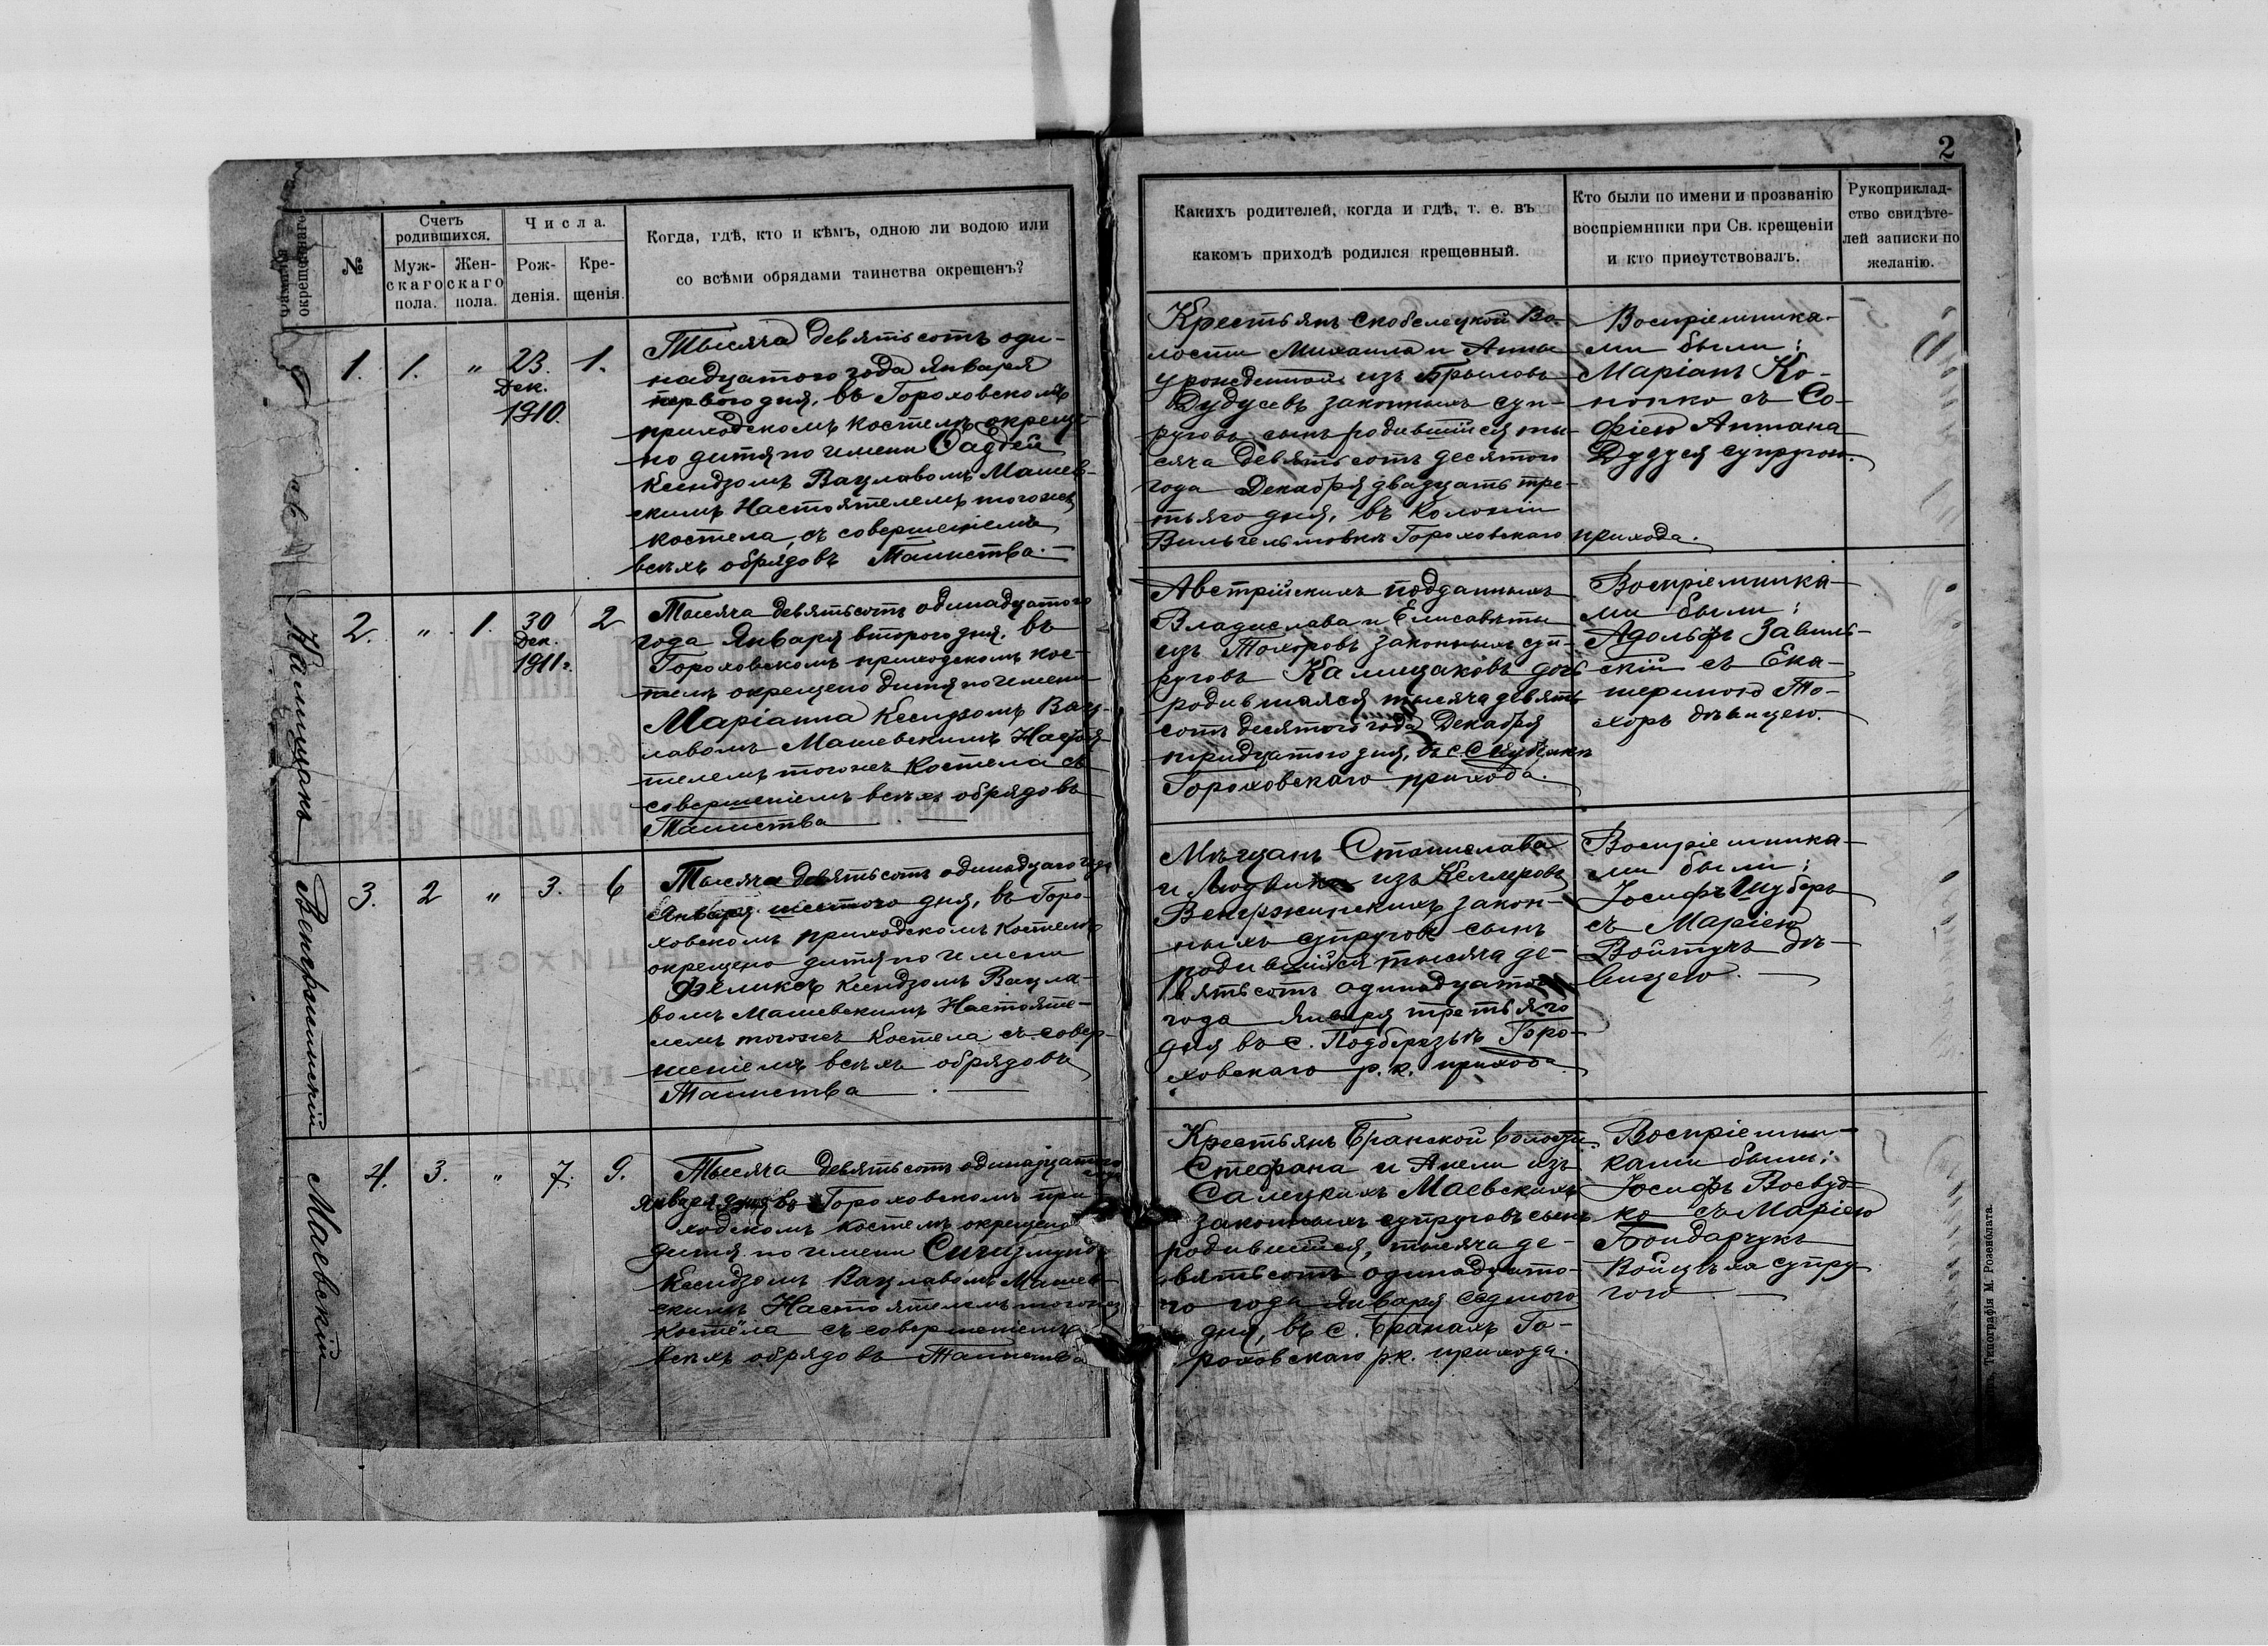 2
Фамилія окрещеннаго
№
Счетъ родившихся.
Муж-скаго пола.
Жен-скаго пола.
Числа.
Рож-денія.
Кре-щенія.
Когда, гдѣ, кто и кѣмъ, одною ли водою или
со всѣми обрядами таинства окрещенъ?
Какихъ родителей, когда и гдѣ, т. е. въ
какомъ приходѣ родился крещенный.
Кто были по имени и прозванію
воспріемники при Св. крещеніи
и кто присутствовалъ.
Рукоприклад-
ство свидѣте-
лей записки по
желанію.
1. 1. " 23. Дек. 1910. 1.
Тысяча девятьсотъ оди-
надцатого года Января
первого дня, въ Гороховскомъ
приходскомъ костелѣ окреще-
но дитя по имени Фаддей
Ксендзомъ Вацлавомъ Машев-
скимъ Настоятелемъ тогоже
костела, съ совершеніемъ
всѣхъ обрядовъ Таинства.
Крестьянъ Скобелецкой Во-
лости Михаила и Анны
урожденной изъ Брыловъ
Дудусевъ законныхъ суп-
руговъ сынъ родившійся ты-
сяча девятьсотъ десятого
года Декабря двадцать тре-
тьяго дня, въ Колоніи
Вильгельмовкѣ Гороховскаго прихода.
Воспріемника-
ми были:
Маріанъ Ко-
нопко съ Со-
фіею Антона
Дудуся супругою.
Калищакъ
2. " 1. 30 Дек. 1911г. 2
Тысяча девятьсотъ одинадцатого
года Января второго дня, въ
Гороховскомъ приходскомъ кос-
телѣ окрещено дитя по имени
Маріанна Ксендзомъ Вац-
лавомъ Машевскимъ Настоя-
телемъ тогоже Костела съ
совершеніемъ всѣхъ обрядовъ
Таинства
Австрійскихъ подданныхъ
Владислава и Елисаветы
изъ Тохоровъ законныхъ суп-
руговъ Калищаковъ дочь
родившаяся тысяча девять
сотъ десятого года Декабря
тридцатого дня, въ с.
Гороховскаго прихода.
Воспріемника-
ми были:
Адольфъ Завиль-
скій съ Ека-
териною То-
хоръ дѣвицею.
Венгержинскій
3. 2 " 3. 6
Тысяча девятьсотъ одинадцаго года
Января шестого дня, въ Горо-
ховскомъ приходскомъ Костелѣ
окрещено дитя по имени
Феликсъ Ксендзомъ Вацла-
вомъ Машевскимъ Настояте-
лемъ тогоже Костела съ совер-
шеніемъ всѣхъ обрядовъ
Таинства
Мѣщанъ Станислава
и Людвики изъ Келлеровъ
Венгержинскихъ закон-
ныхъ супруговъ сынъ
родившійся тысяча де-
вятьсотъ одинадцатого
года Января третьяго
дня въ с. Подберезьѣ Горо-
ховскаго р. к. прихода
Воспріемника-
ми были:
Іосифъ Шуберъ
съ Маріею
Войтухъ дѣ-
вицею.
Маевскій
4. 3. " 7. 9.
Тысяча девятьсотъ одинадцатого года
Января 9 дня въ Гороховскомъ при-
ходскомъ костелѣ окрещено
дитя по имени Сигизмундъ
Ксендзомъ Вацлавомъ Машев-
скимъ Настоятелемъ тогоже
Костёла съ совершеніемъ
всѣхъ обрядовъ Таинства
Крестьянъ Бранской волости
Стефана и Анели изъ
Салецкихъ Маевскихъ
законныхъ супруговъ сынъ
родившійся, тысяча де-
вятьсотъ одинадцато-
го года Января седмого
дня, въ с. Бранахъ Го-
роховскаго р.к. прихода.
Воспріемни-
ками были:
Іосифъ Воевуд-
ко съ Маріею
Бондарчукъ
Войцѣха супру
гою.
Типографія М. Розенблата.